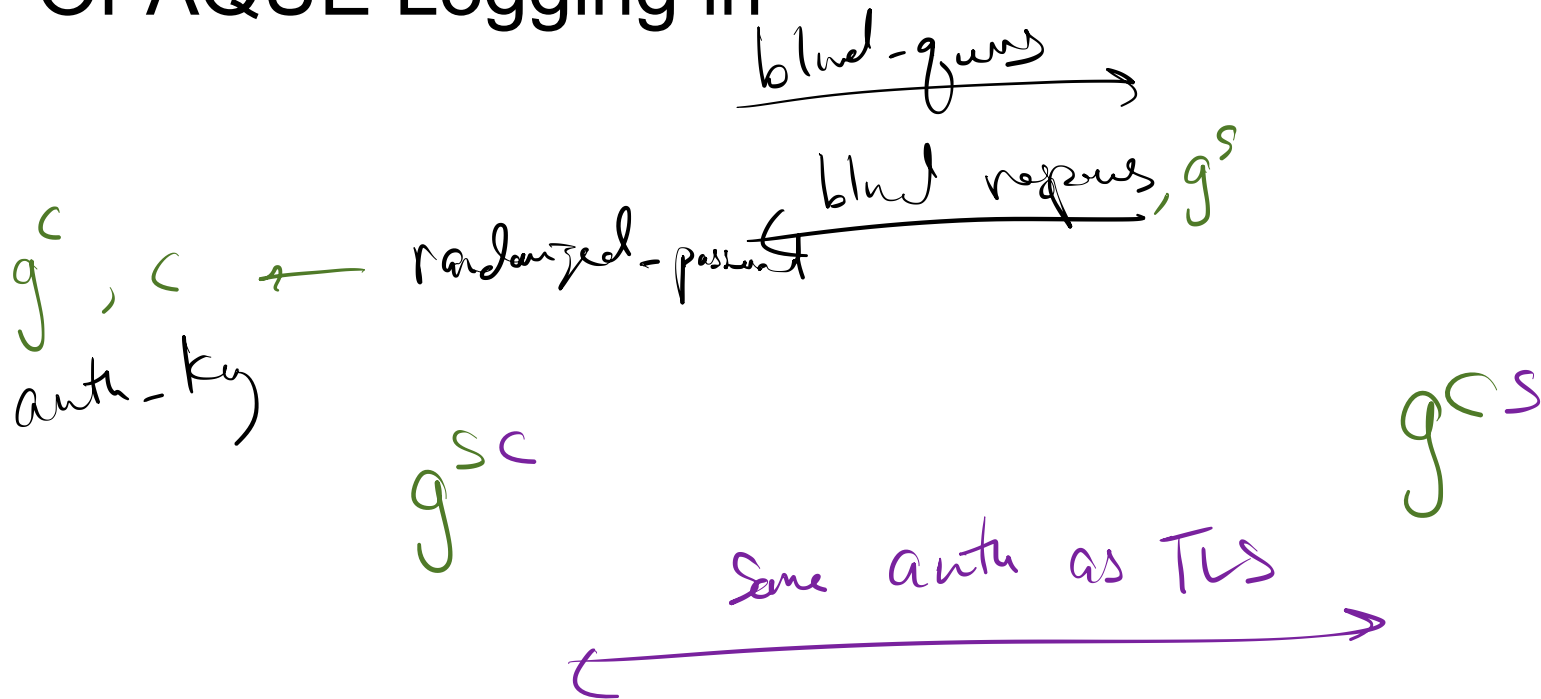 OPAQUE Logging in
blind-query
blind response, g^s
g^c, c ← randomized-password
auth-key
g^sc
g^cs
Same auth as TLS